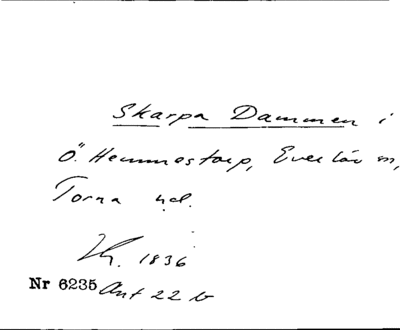 Skarpa Dammen i
Ö. Hemmestorp, Everlöv sn,
Torna hd.
1836
Nr 6235 Ant 22 b